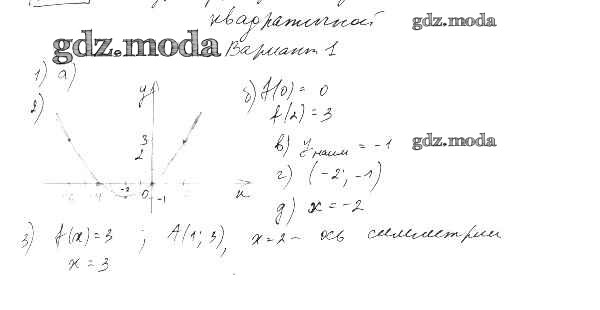 квадратичной
gdz.moda
gdz.moda
Вариант 1
1) а)
2)
y
3
2
-4
-2
0
-1
x
б) f(0) = 0
f(2) = 3
в) y наим = -1
gdz.moda
г) (-2; -1)
д) x = -2
3) f(x) = 3 ; A(1; 3), x = 2 - ось симметрии
x = 3